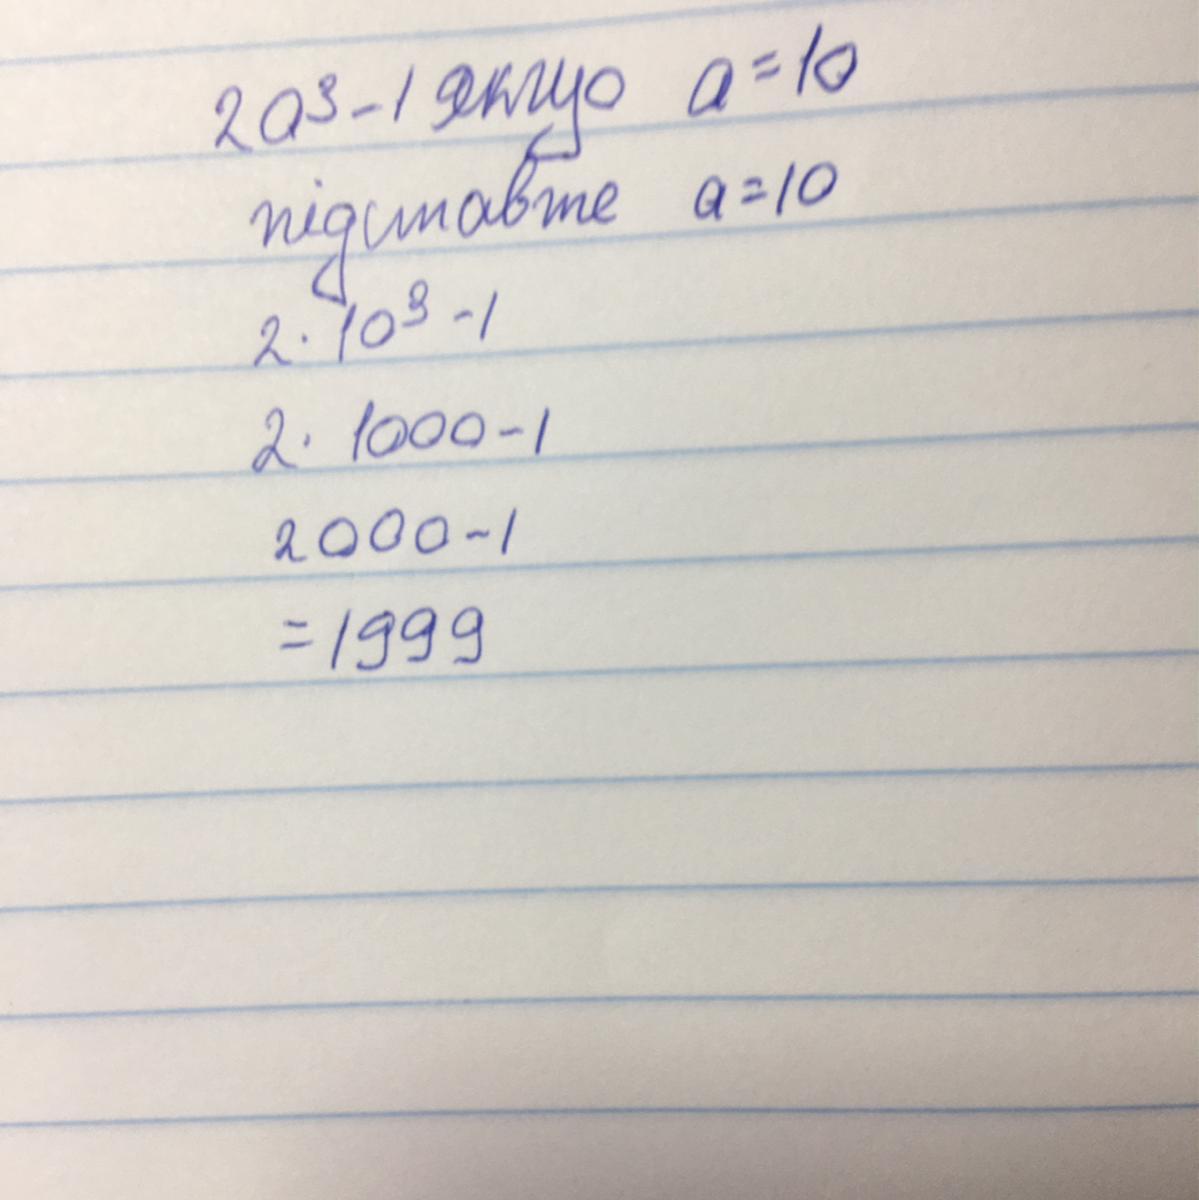 2a³-1 якщо a=10
підставте a=10
2·10³-1
2·1000-1
2000-1
=1999